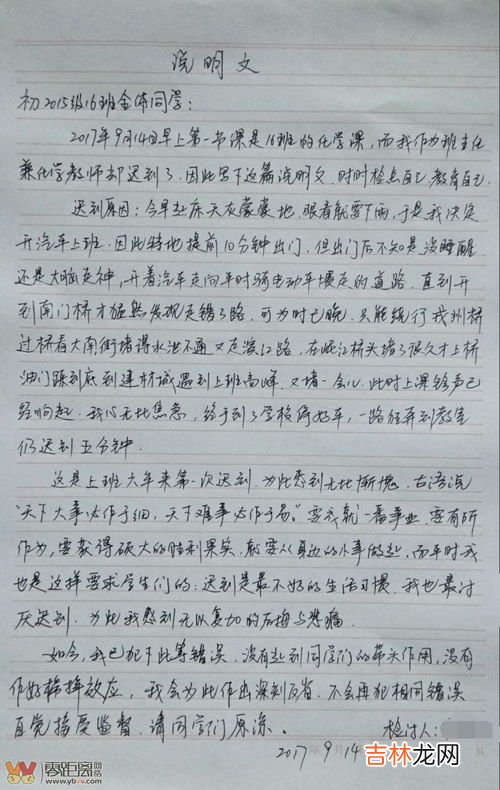 说明文
初2015级16班全体同学:
2017年9月14日早上第一节课是16班的化学课,而我作为班主任
兼化学教师却迟到了。因此写下这篇说明文,时时检点自己,教育自己。
迟到原因:今早起床天灰蒙蒙地,眼看就要下雨,于是我决定
开汽车上班。因此特地提前10分钟出门,但出门后不知是没睡醒
还是大脑走神,开着汽车走向平时骑电动车惯走的道路,直到开
到南门桥才猛然发现走错了路,可为时已晚,只能绕行戎州桥
过桥看大南街堵得水泄不通又走滨江路,在岷江桥头堵了很久才上桥
油门踩到底到建材城遇到上班高峰,又堵一会儿,此时上课铃声已
经响起,我心无比焦急,终于到了学校停好车,一路狂奔到教室
仍迟到五分钟。
这是上班六年来第一次迟到,为此感到无比惭愧,古语说
“天下大事必作于细,天下难事必作于易。”要成就一番事业,要有所
作为,要获得硕大的胜利果实,就要从身边的小事做起,而平时我
也是这样要求学生们的:迟到是最不好的生活习惯,我也最讨
厌迟到,为此我感到无以复加的后悔与悲痛。
如今,我已犯下此等错误,没有起到同学们的带头作用,没有
作好榜样效应,我会为此作出深刻反省,不会再犯相同错误
自觉接受监督,请同学们原谅。 检讨人:
2017 9 14
吉林龙网
零距离网络
www.ybvv.com